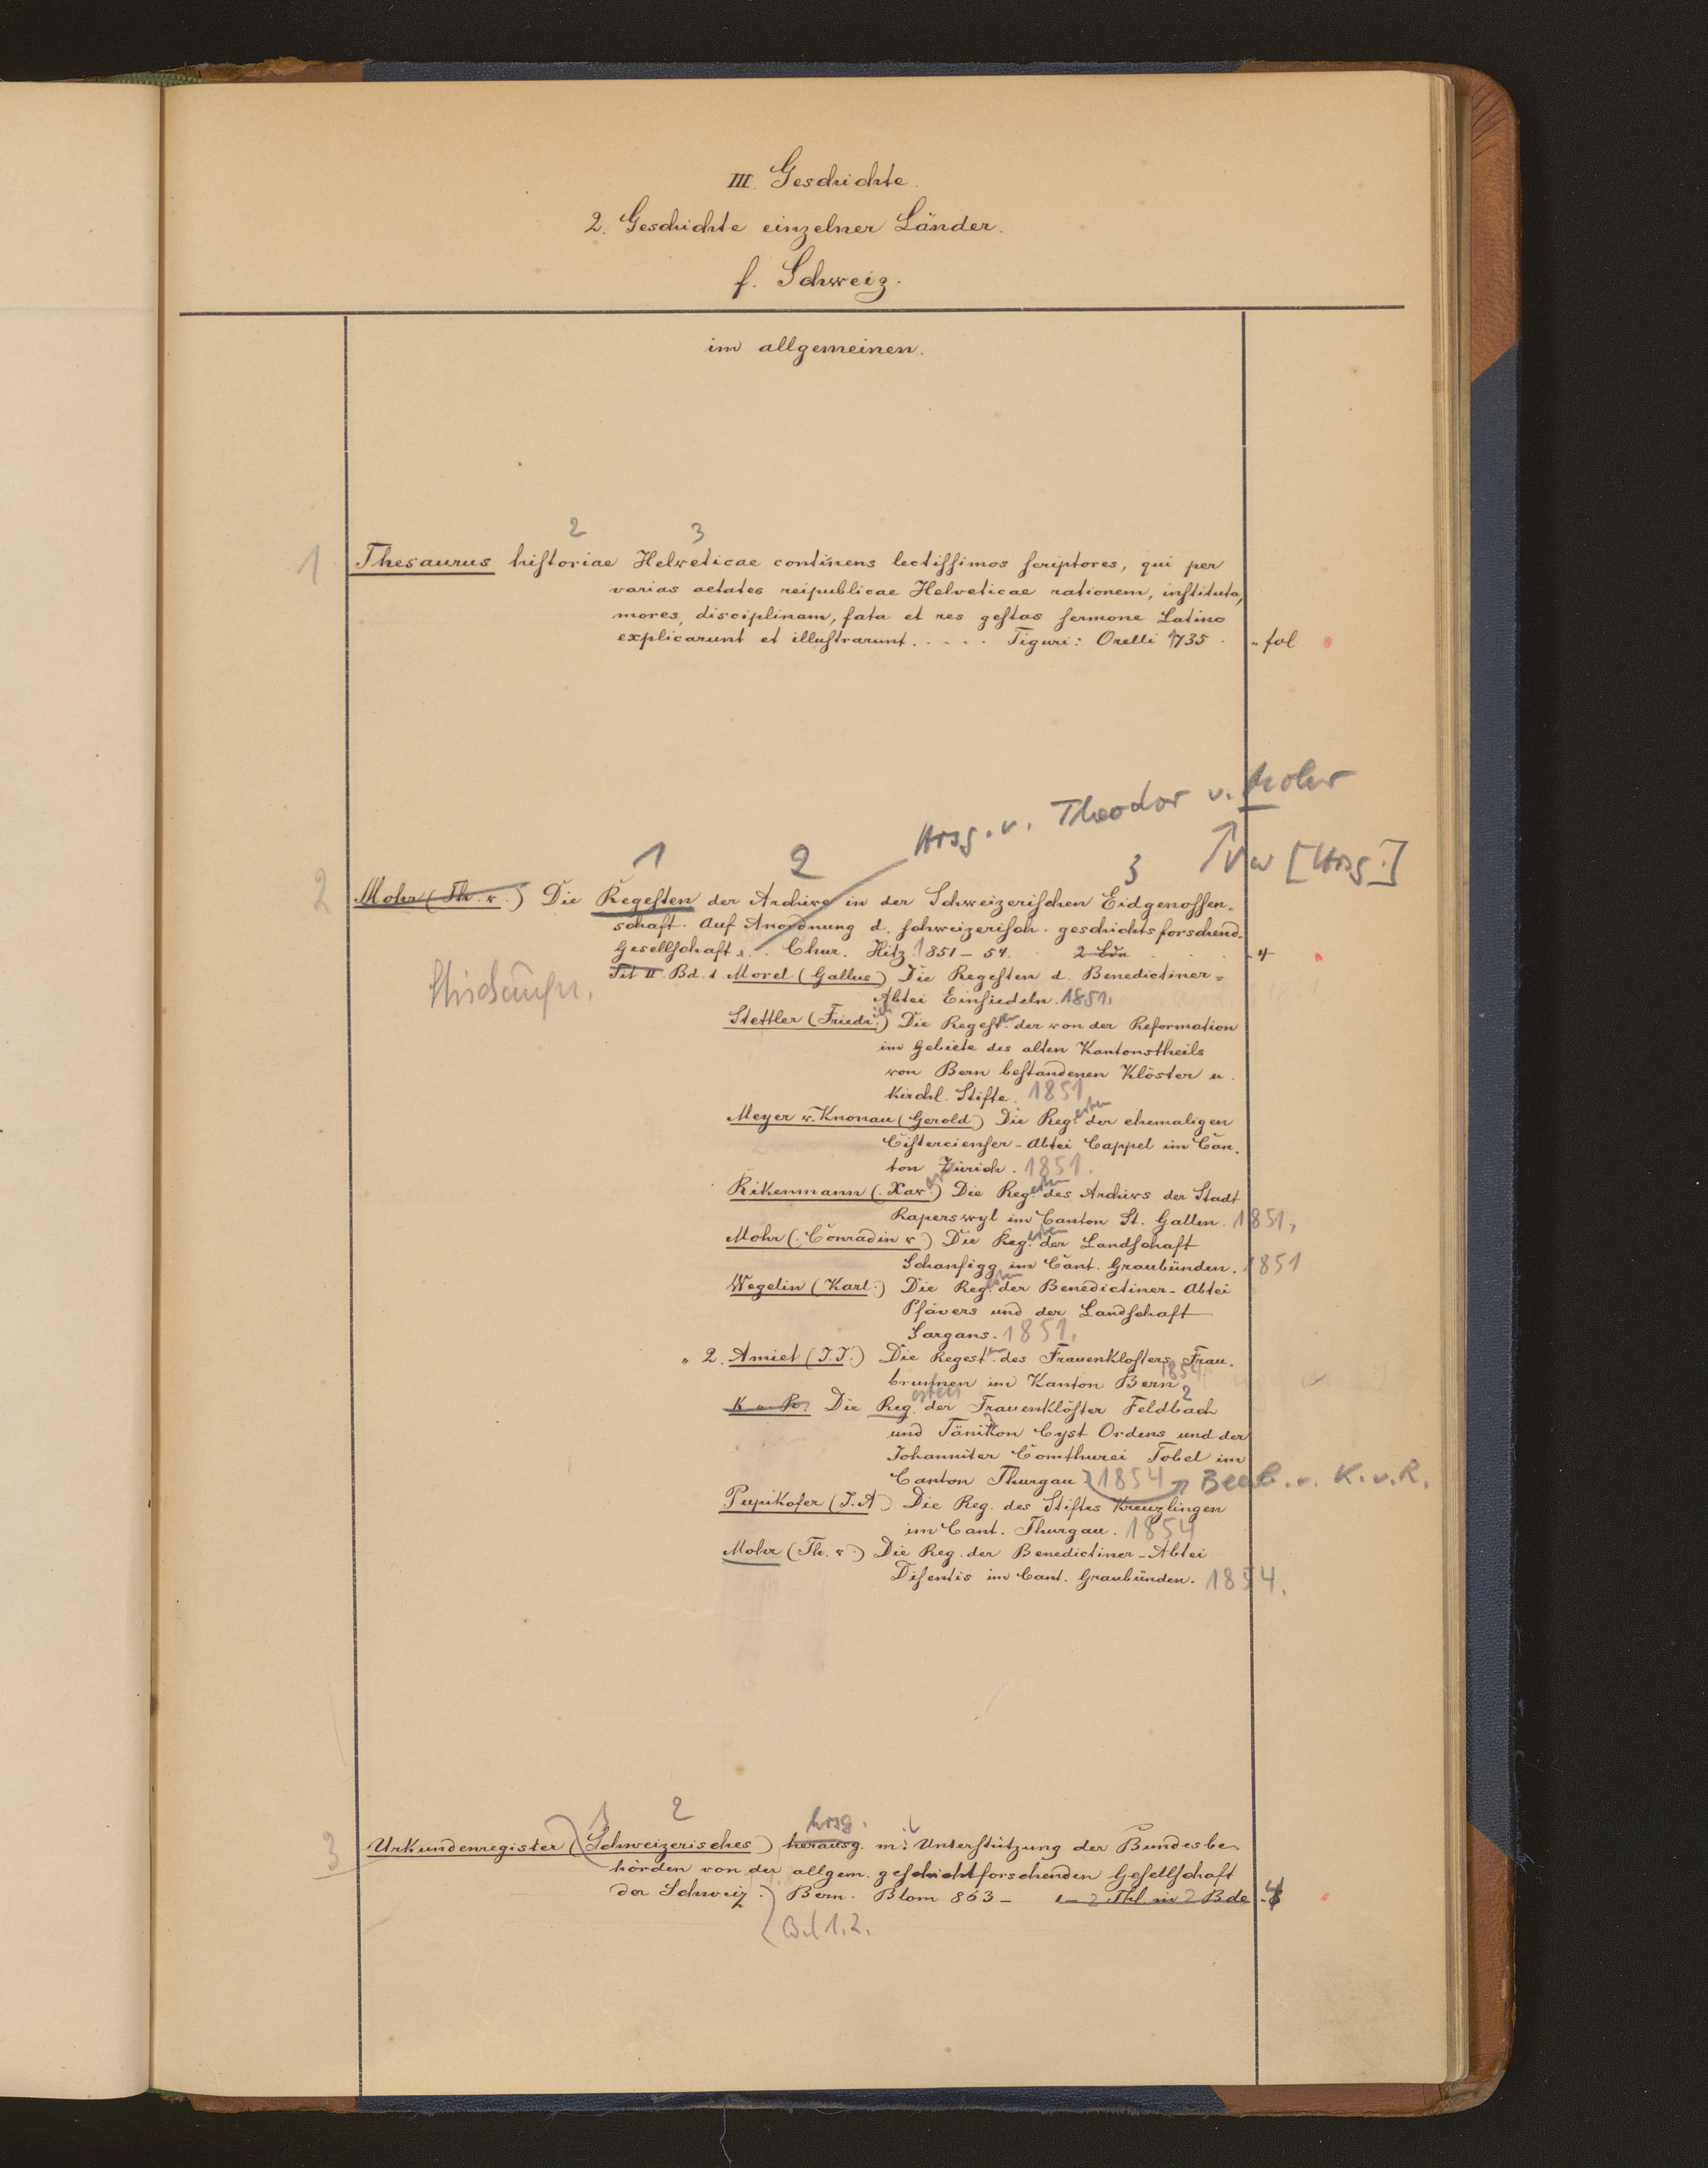 III. Geschichte.
2. Geschichte einzelner Länder.
f. Schweiz.
im allgemeinen.
2 3
1 Thesaurus historiae Helveticae continens lectissimos scriptores, qui per
varias aetates reipublicae Helveticae rationem, instituta,
mores, disciplinam, fata et res gestas sermone Latino
explicarunt et illustrarunt. . . . . Tiguri: Orelli 1735. „ fol
Hrsg. v. Theodor v. Mohr
1 2 3 ↑ Vw [Hrsg.]
2 Mohr (Th. v.) Die Regesten der Archive in der Schweizerischen Eidgenossen-
schaft. Auf Anordnung d. schweizerisch. geschichtsforschend.
Gesellschaft. . . Chur. Hitz. 1851 – 54. 2 Bde . . . 4
Tit II. Bd. 1. Morel (Gallus) Die Regesten d. Benedictiner=
Abtei Einsiedeln. 1851.
Stettler (Friedr.) Die Regesten der von der Reformation
im Gebiete des alten Kantonstheils
von Bern bestandenen Klöster u.
kirchl. Stifte. 1851
Meyer v. Knonau (Gerold) Die Regesten der ehemaligen
Cistercienser-Abtei Cappel im Can-
ton Zürich. 1851.
Rikenmann (Xaver) Die Regesten des Archivs der Stadt
Raperswyl im Canton St. Gallen. 1851.
Mohr (Conradin v.) Die Regesten der Landschaft
Schanfigg im Cant. Graubünden. 1851
Wegelin (Karl.) Die Regesten der Benedictiner-Abtei
Pfävers und der Landschaft
Sargans. 1851.
„ 2. Amiet (J.J.) Die Regesten des Frauenklosters Frau-
brunnen im Kanton Bern 1854
K. v. R. Die Regesten der Frauenklöster Feldbach 2
und Tänikon Cyst Ordens und der
Johanniter Comthurei Tobel im
Canton Thurgau 1854 Bearb. v. K. v. R.
Pupikofer (J.A.) Die Reg. des Stiftes Kreuzlingen
im Cant. Thurgau. 1854
Mohr (Th. v.) Die Reg. der Benedictiner-Abtei
Disentis im Cant. Graubünden. 1854.
1 2 hrsg.
3 Urkundenregister (Schweizerisches) herausg. mit Unterstützung der Bundesbe-
hörden von der allgem. geschichtforschenden Gesellschaft
der Schweiz. Bern. Blom 863 – 1–2 Thl. in 2 Bde 4
Bd 1.2.